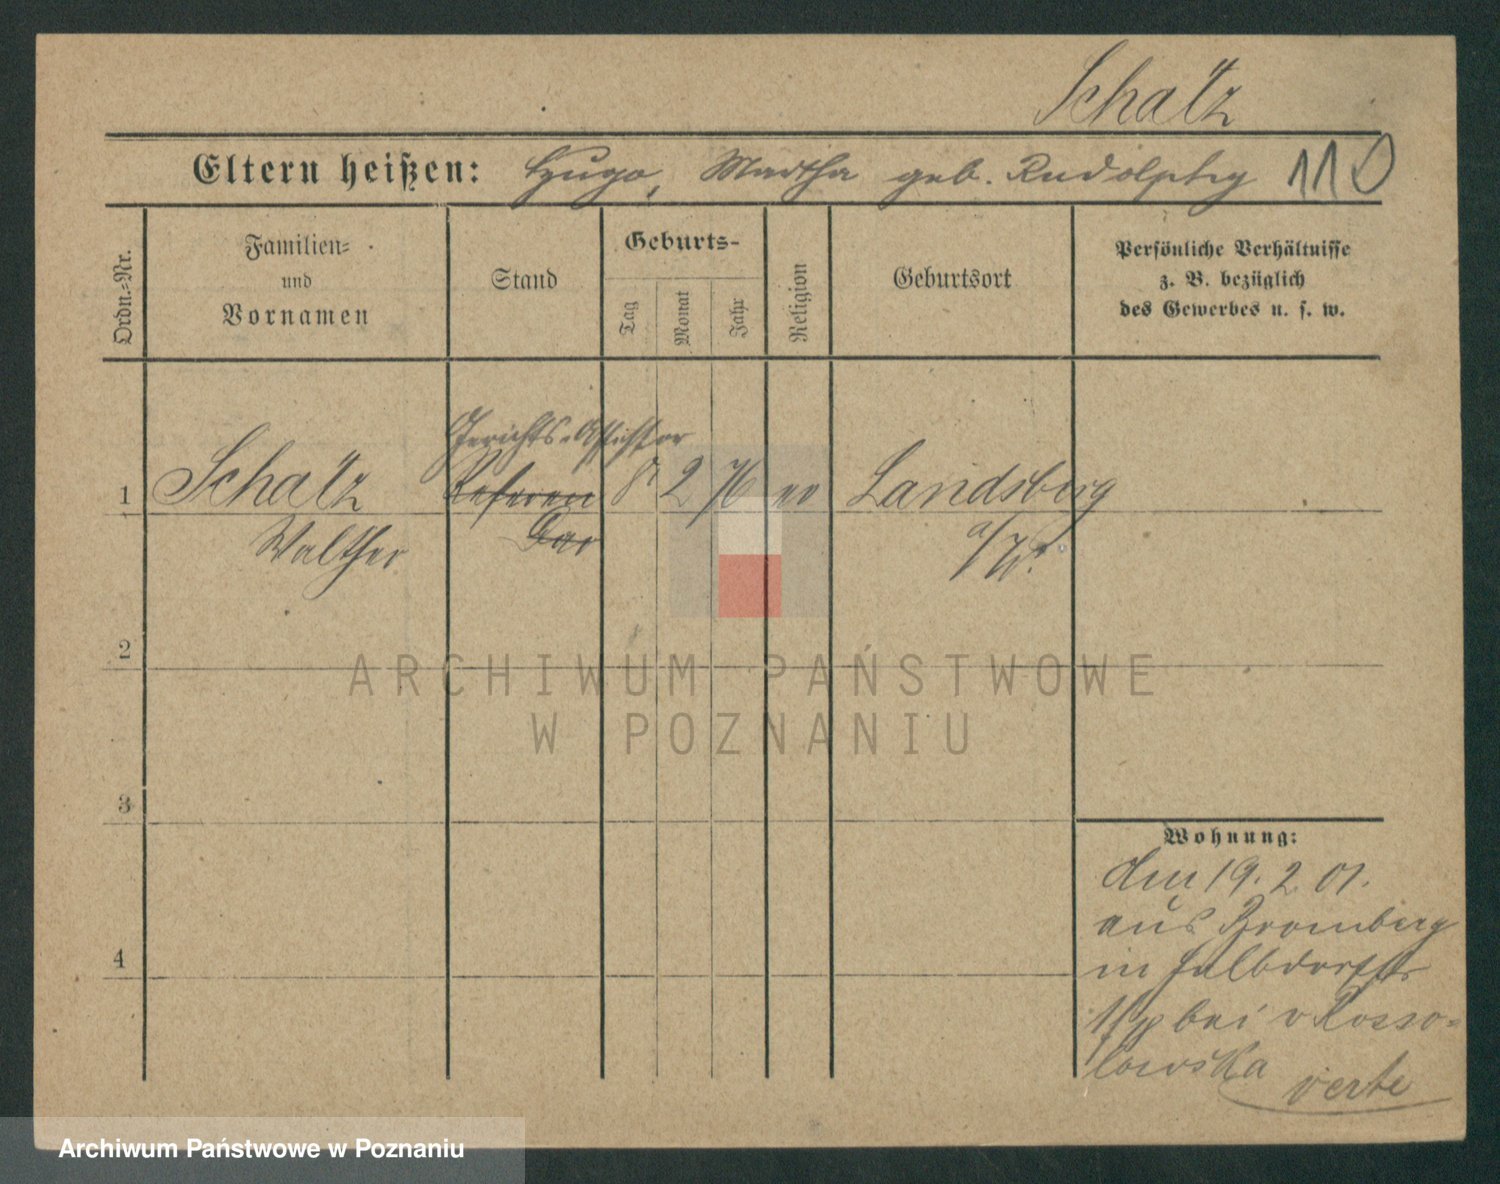 Schatz
Eltern heißen: Hugo, Martha geb. Rudolphy 110
Ordn.-Nr.
Familien-
und
Vornamen
Stand
Geburts-
Tag
Monat
Jahr
Religion
Geburtsort
Persönliche Verhältnisse
z. B. bezüglich
des Gewerbes u. s. w.
Gerichts-Assessor
1 Schatz Referen 2 76 ev Landsberg
Walther dar a/W.
2
ARCHIWUM PAŃSTWOWE
W POZNANIU
3
4
Wohnung:
den 19. 2. 01.
aus Bromberg
in
bei v Rosso-
lowska
verte
Archiwum Państwowe w Poznaniu